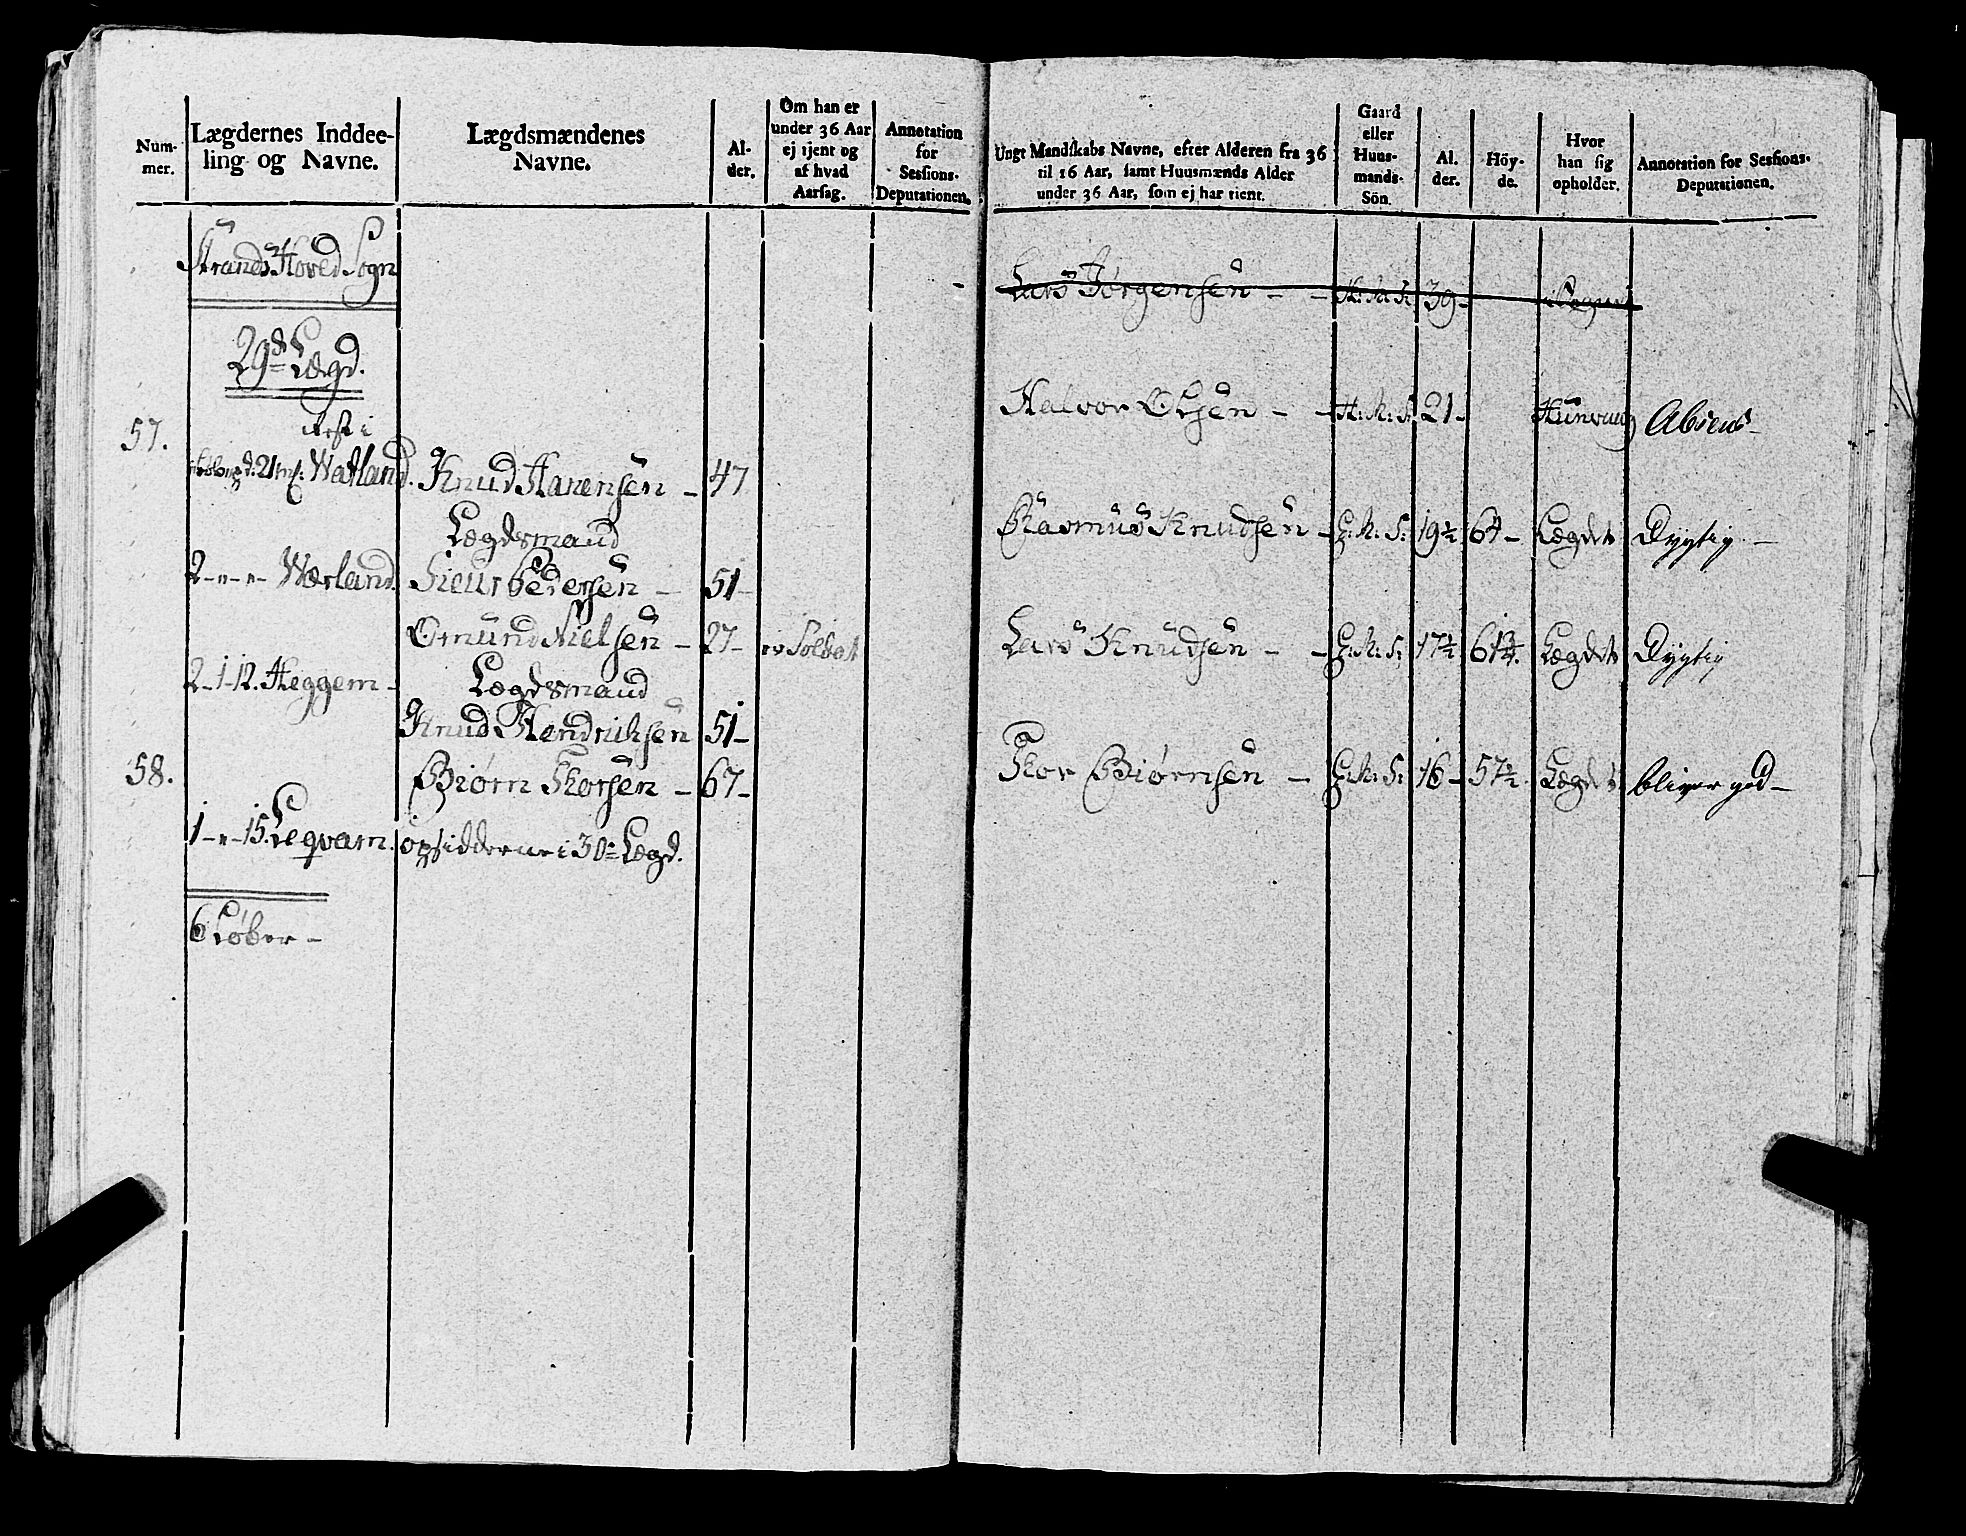 Num-
mer.
Lægdernes Inddee-
ling og Navne.
Lægdsmændenes
Navne.
Al-
der.
Om han er
under 36 Aar
ej tjent og
af hvad
Aarsag.
Annotation
for
Sessions-
Deputationen.
Strands Hoved Sogn
29de Lægd.
57.
Rest i
21 mk: Watland. Knud Hansensen - 47
Lægdsmand
2 - " - " - Wærland. Sieur Pedersen - 51 -
Omund Nielsen - 27 - er Soldat
2 - 1 - 12. Heggem - Lægdsmand
Knud Hendriksen 51 -
58.
Biørn Thorsen - 67 -
1 - " - 15. Leqvam. opsidderne i 30te Lægd.
6 Løber -
Ungt Mandskabs Navne, efter Alderen fra 36
til 16 Aar, samt Huusmænds Alder
under 36 Aar, som ej har tient.
Gaard
eller
Huus-
mands-
Sön.
Al.
der.
Höy-
de.
Hvor
han sig
opholder.
Annotation for Sessions-
Deputationen.
Lars Jørgensen - - H: M: S: 39 -
Halvor Olsen - - H: M: S: 21 - Absens -
Rasmus Knudsen - G: M: S: 19½ 64 - Lægdet Dygtig -
Lars Knudsen - - G: M: S: 17½ Lægdet Dygtig
Thor Biørnsen - G: M: S: 16 - 57½ Lægdet bliver god -